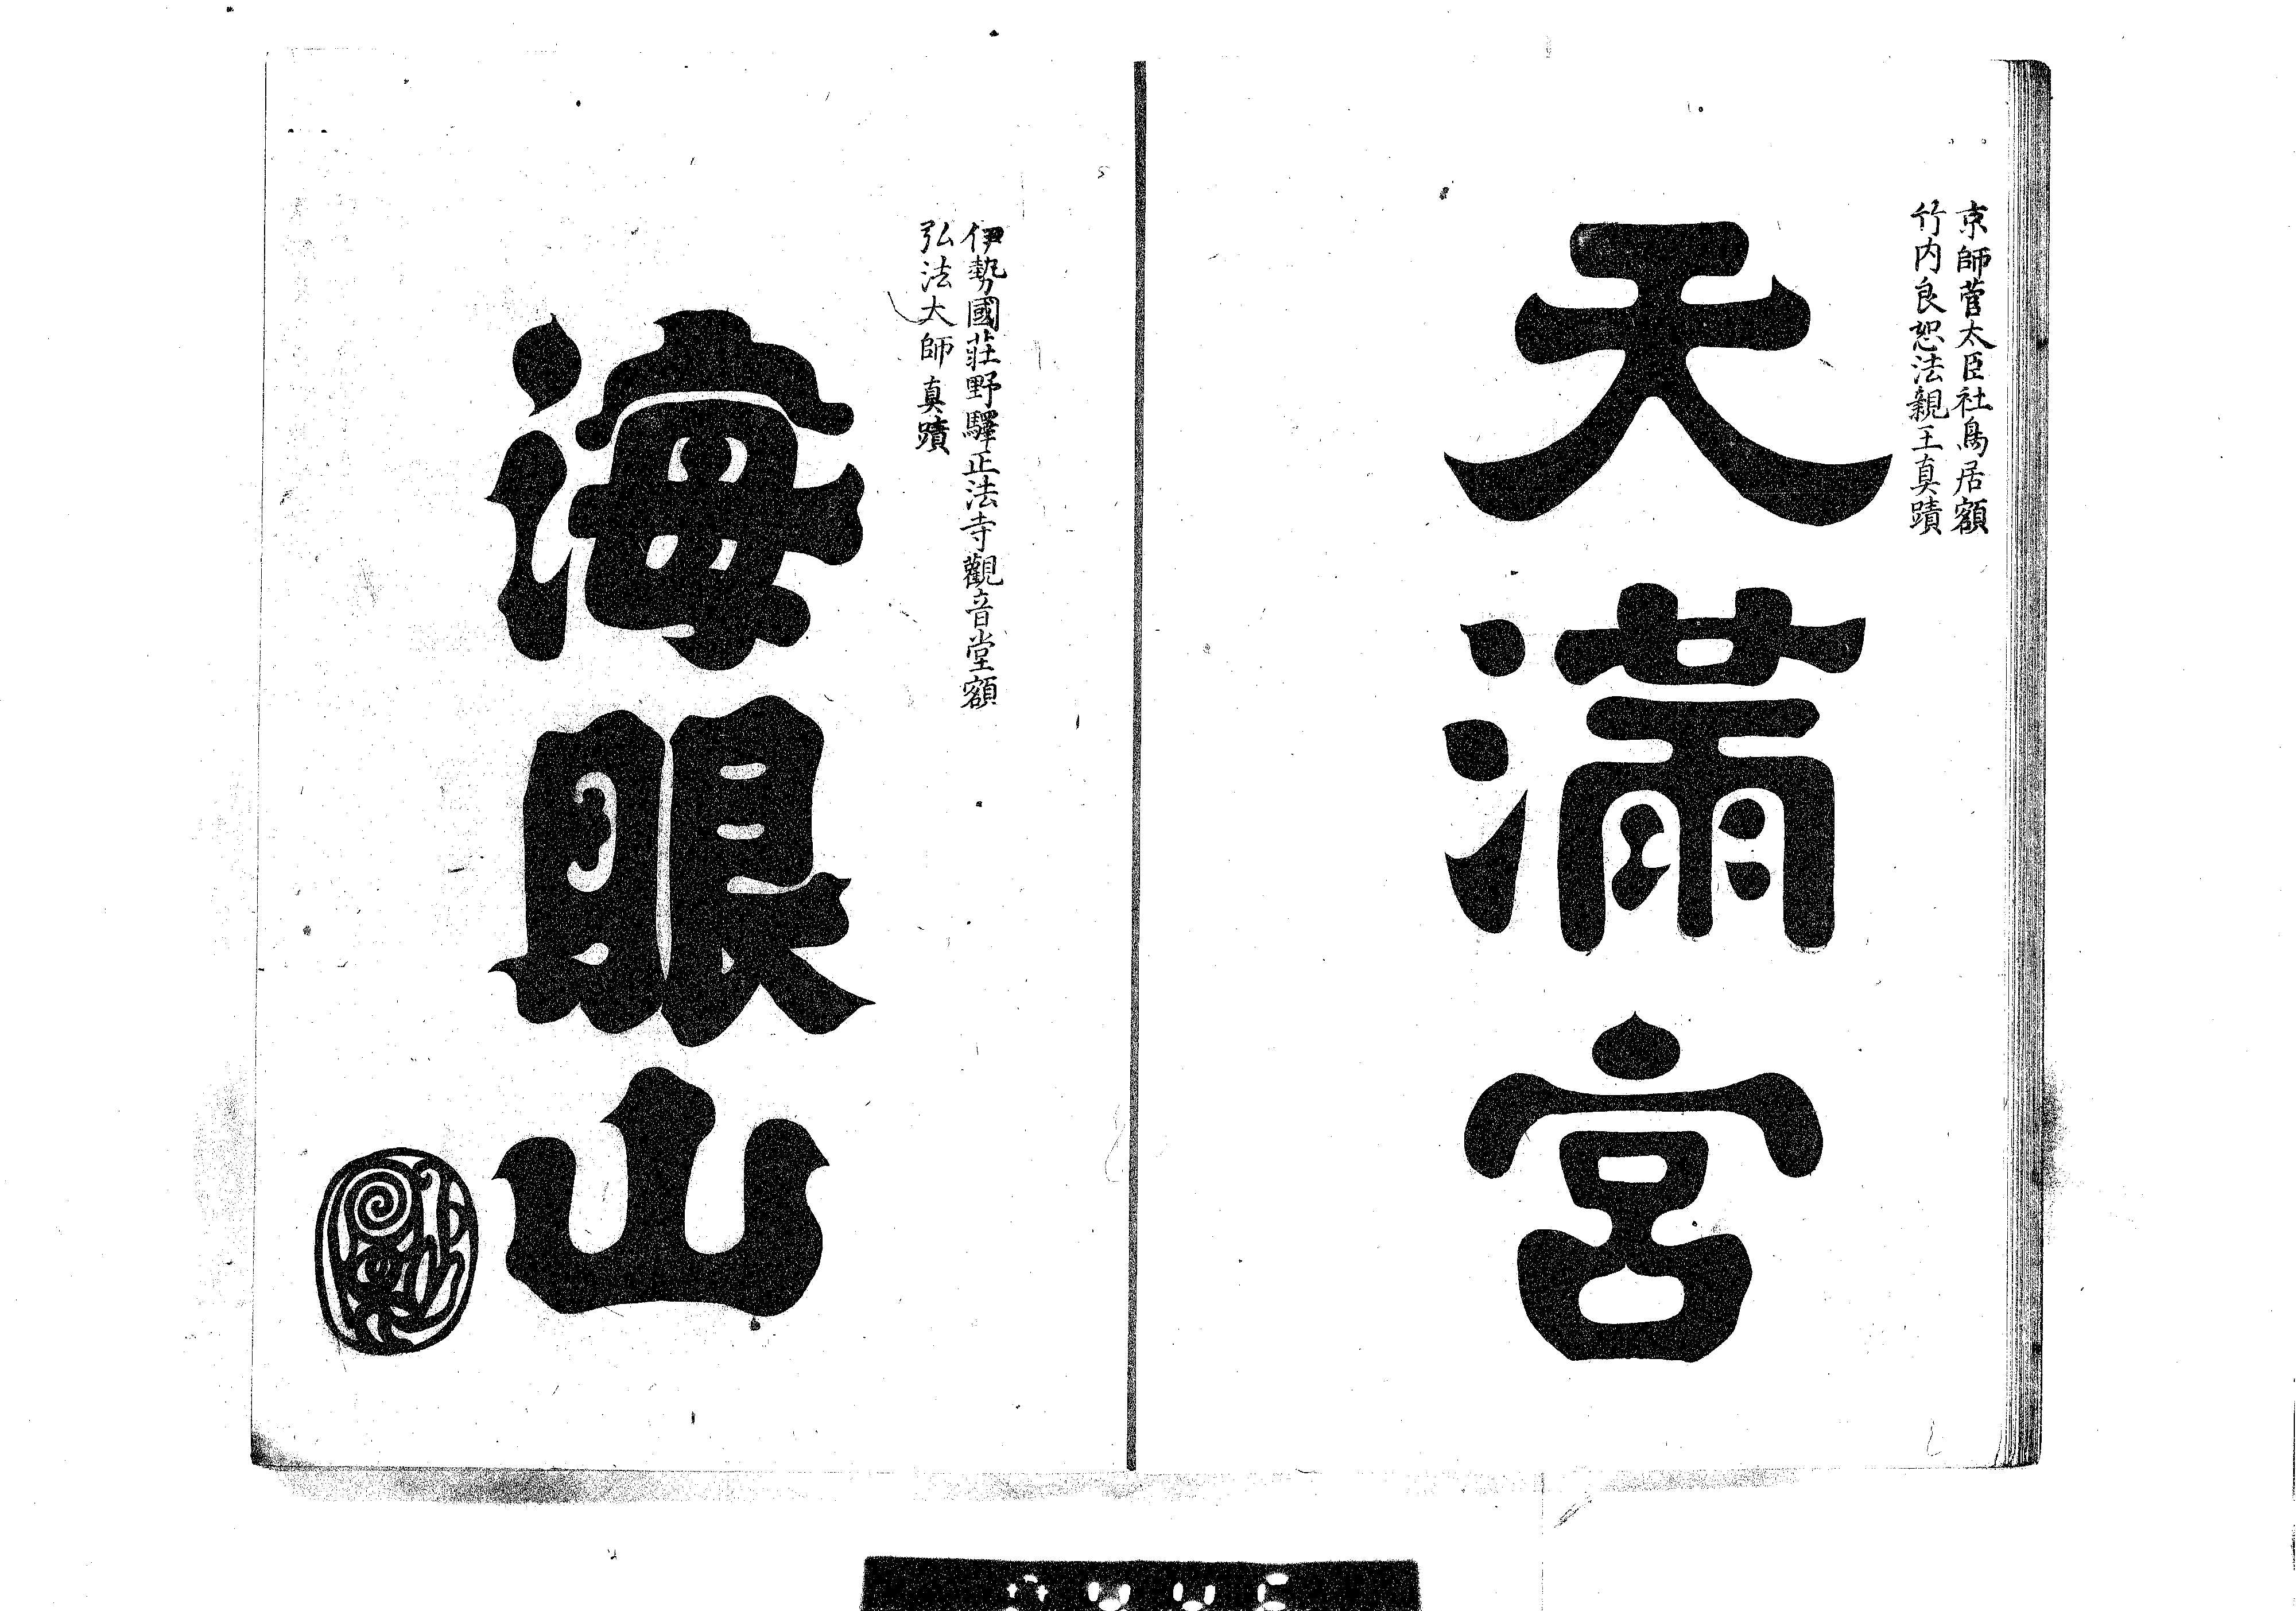 京師菅太臣社鳥居額
竹内良恕法親王真蹟
天滿宮
伊勢國荘野驛正法寺觀音堂額
弘法大師真蹟
海眼山